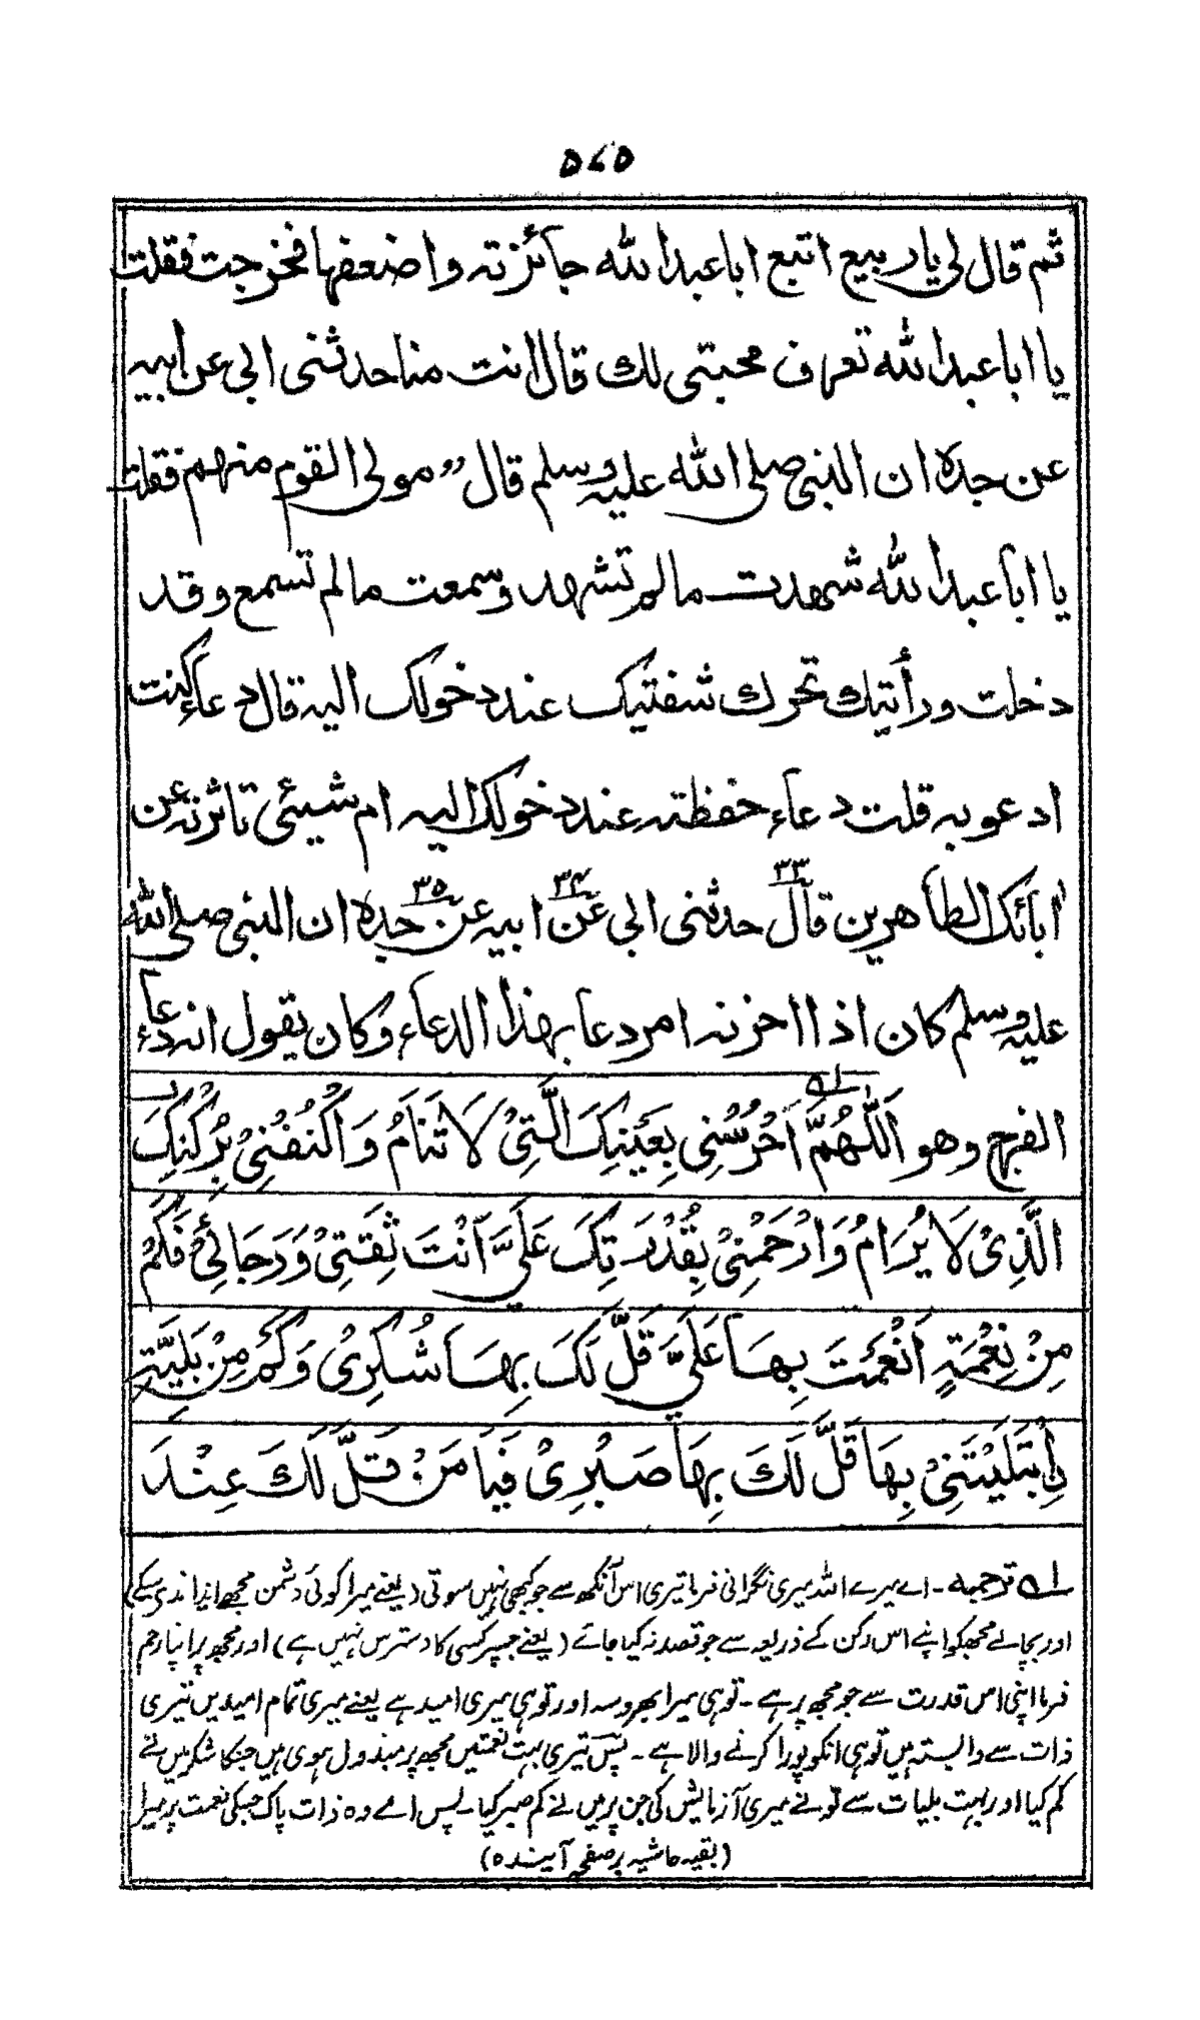 ۵۷۵
ثم قال لی یا ربیع اتبع ابا عبد الله جائزته واضعفها فخرجت فقلت
یا ابا عبد الله تعرف محبتی لك قال انت منا حدثنی ابی عن ابیه
عن جده ان النبی صلی الله علیه وسلم قال ” مولی القوم منهم فقلت
یا ابا عبد الله شهدت مالم تشهد وسمعت مالم تسمع وقد
دخلت ورأیتك تحرك شفتیك عند دخولك الیه قال دعاء کنت
ادعو به قلت دعاء حفظته عند دخولك الیه ام شیئی تاثرته عن
ابائك الطاهرین قال ۳۳ حدثنی ابی عن ۳۴ ابیه عن ۳۵ جده ان النبی صلی الله
علیه وسلم کان اذا احزنه امر دعا بهذا الدعاء وکان یقول انه دعاء
الفرج وهو اَللّٰهُمَّ لہ اَحْرُسْنِی بِعَیْنِكَ الَّتِیْ لَا تَنَامُ وَاكْنُفْنِیْ بِرُكْنِكَ
الَّذِیْ لَا یُرَامُ وَارْحَمْنِیْ بِقُدْرَتِكَ عَلَیَّ اَنْتَ ثِقَتِیْ وَرَجَائِیْ فَكَمْ
مِنْ نِعْمَةٍ اَنْعَمْتَ بِهَا عَلَیَّ قَلَّ لَكَ بِهَا شُكْرِیْ وَكَمْ مِنْ بَلِیَّةٍ
اِبْتَلَیْتَنِیْ بِهَا قَلَّ لَكَ بِهَا صَبْرِیْ فَیَا مَنْ قَلَّ لَكَ عِنْدَ
لہ ترجمہ ۔ اے میرے اللہ میری نگرانی فرما تیری اس آنکھ سے جو کبھی نہیں سوتی (یعنے میرا کوئی دشمن مجھے ایذا نہ دی سکے)
اور بچالے مجھکو اپنے اس رکن کے ذریعہ سے جو قصد نہ کیا جائے (یعنے جسپر کسی کا دسترس نہیں ہے) اور مجھ پر اپنا رحم
فرما اپنی اس قدرت سے جو مجھ پر ہے ۔ تو ہی میرا بھروسہ اور تو ہی میری امید ہے یعنے میری تمام امیدیں تیری
ذات سے وابستہ ہیں تو ہی انکو پورا کرنے والا ہے ۔ پس تیری بہت نعمتیں مجھ پر مبذول ہوی ہیں جنکا شکر میں نے
کم کیا اور بہت بلیات سے تو نے میری آزمایش کی جن پر میں نے کم صبر کیا ۔ پس اے وہ ذات پاک جسکی نعمت پر میرا
(بقیہ حاشیہ بر صفحہ آیندہ)